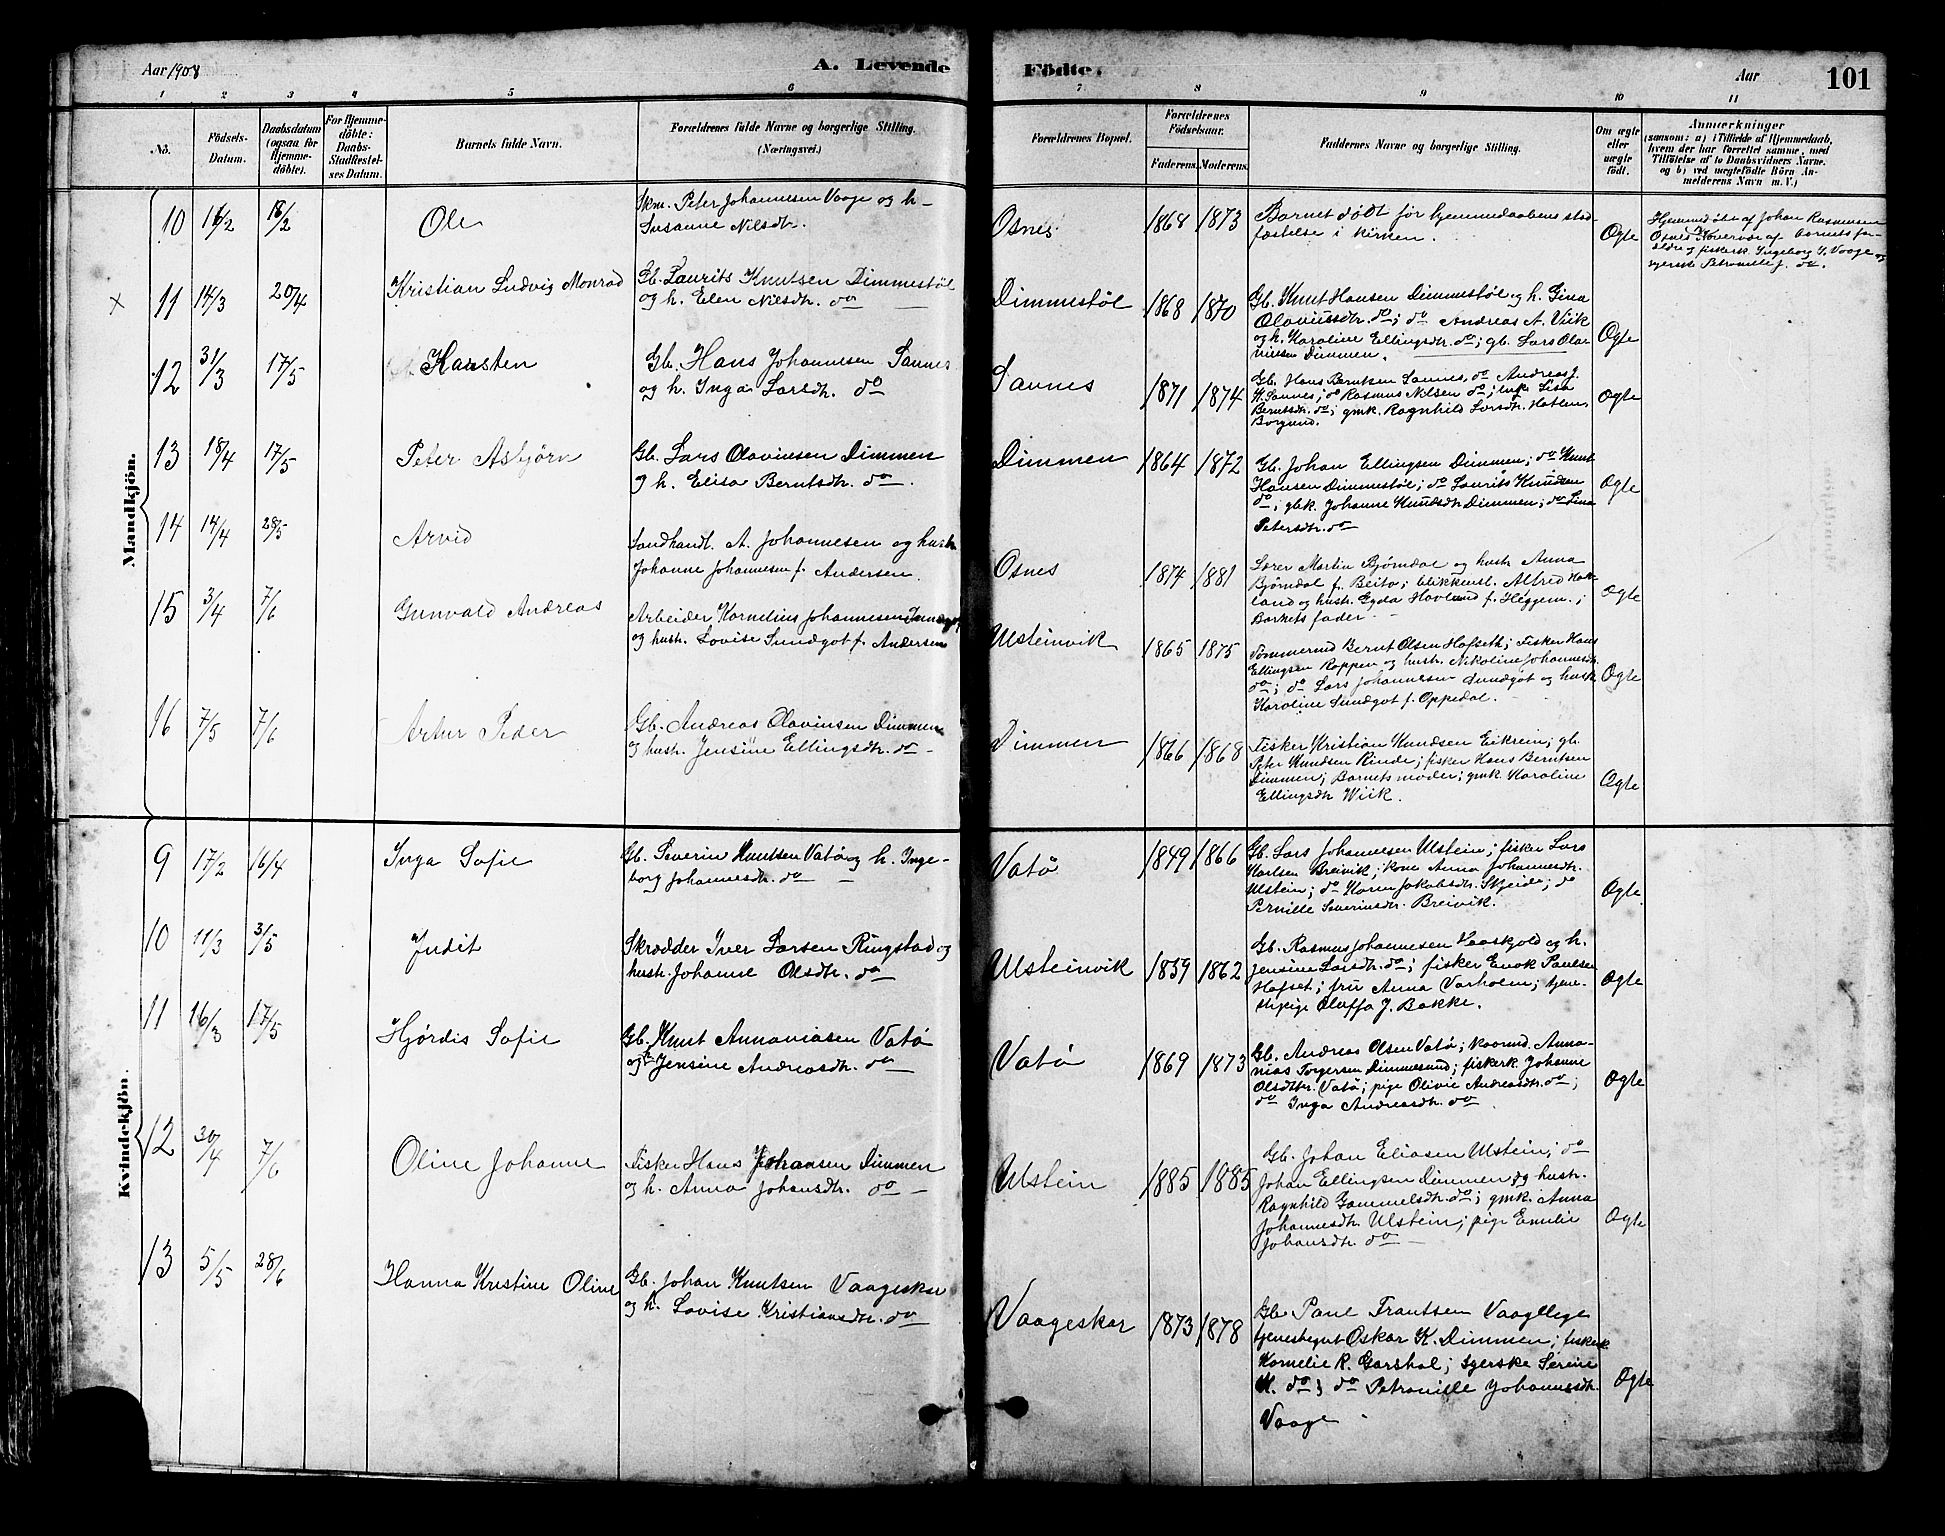 Aar 1908
A. Levende
Födte.
Aar
101
1 2 3 4 5 6 7 8 9 10 11
No.
Födsels-
Datum.
Daabsdatum
(ogsaa for
Hjemme-
döbte).
For Hjemme-
döbte:
Daabs-
Stadfæstel-
ses Datum.
Barnets fulde Navn.
Forældrenes fulde Navne og borgerlige Stilling.
(Næringsvei.)
Forældrenes Bopæl.
Forældrenes
Födselsaar.
Faderens. Moderens.
Faddernes Navne og borgerlige Stilling.
Om ægte
eller
uægte
födt.
Anmærkninger
(saasom: a) i Tilfælde af Hjemmedaab,
hvem der har forrettet samme, med
Tilföielse af to Daabsvidners Navne.
og b) ved uægtefödte Börn An-
melderens Navn m. V.)
Mandkjön.
10 16/2 18/2 Ole
Skm. Peter Johannesen Vaage og h-
Susanne Nilsdtr.
Osnes 1868 1873
Barnet dödt för hjemmedaabens stad-
fæstelse i kirken.
Ægte
Hjemmedöbt af Johan Rasmussen
Osnes
fiskerk. Ingeborg J. Vaage og
x 11 14/3 20/4 Kristian Ludvig Monrad
Gb. Laurits Knutsen Dimmestöl
og h. Elen Nilsdtr. do
Dimmestöl 1868 1870
Gb. Knut Hansen Dimmestöl og h. Gina
Olaviusdtr. do; do Andreas A. Viik
og h. Karoline Ellingsdtr. do; gb. Lars Olav-
insen Dimmen.
Ægte
12 31/3 17/5 Karsten
Gb. Hans Johannesen Saunes
og h. Inga Larsdtr. do
Saunes 1871 1874
Gb. Hans Berntsen Saunes, do Andreas J.
H. Saunes; do Rasmus Nilsen do; enke Lisa
Berntsdtr. do; gmk. Ragnhild Larsdtr. Hatlen
Borgund.
Ægte
13 18/4 17/5 Peter Asbjörn
Gb. Lars Olavinsen Dimmen
og h. Elisa Berntsdtr. do.
Dimmen 1864 1872
Gb. Johan Ellingsen Dimmen; do Knut
Hansen Dimmestöl; do Laurits Knudsen
do, gbk. Johanne Knudsdtr Dimmen; do Lina
Petersdtr. do
Ægte
14 14/4 28/5 Arvid
Landhandl. A. Johannesen og hustr.
Johanne Johannesen f. Andersen.
Osnes 1874 1881
Lærer Martin Bjørndal og hustr. Anna
Bjørndal f. Beito; blikkensl. Alfred Hav-
land og hustr. Egda Havland f. Heggem.;
Barnets fader.
Ægte
15 3/4 7/6 Gunvald Andreas
Arbeider Kornelius Johannesen Sundgot
og hustr. Lovise Sundgot f. Andersen
Ulsteinvik 1865 1875
Tømmermd Bernt Olsen Hofseth; Fisker Hans
Ellingsen Roppen og hustr. Nikoline Johannesdtr.
do; do Lars Johannesen Sundgot og hustr.
Karoline Sundgot f. Oppedal.
Ægte
16 7/5 7/6 Artur Peder
Gb. Andreas Olavinsen Dimmen
og hustr. Jensine Ellingsdtr. do
Dimmen 1866 1868
Fisker Kristian Knudsen Eikrein; gb.
Peter Knudsen Rinde; fisker Hans Berntsen
Dimmen; Barnets moder; gmk. Karoline
Ellingsdtr Wiik.
Ægte
Kvindekjön.
9 17/2 16/4 Inga Sofie
Gb. Severin Knutsen Vatö og h. Inge-
borg Johannesdtr. do
Vatö 1849 1866
Gb. Lars Johannesen Ulstein; fisker Lars
Karlsen Breivik; kone Anna Johannesdtr.
Ulstein; do Karen Jakobsdtr. Skjeide; do
Pernille Severinsdtr. Breivik.
Ægte
10 11/3 3/5 Judit
Skrædder Iver Larsen Ringstad og
hustr. Johanne Olsdtr. do
Ulsteinvik 1859 1862
Gb. Rasmus Johannesen Haaskjold og h.
Jensine Larsdtr. do; fisker Enok Paulsen
Hofset; fru Anna Varholm; tjene-
stepige Oluffa J. Bakke.
Ægte
11 16/3 17/5 Hjørdis Sofie
Gb. Knut Annaniasen Vatö
og h. Jensine Andreasdtr. do
Vatö 1869 1873
Gb. Andreas Olsen Vatö; kaarmd. Anna-
nias Torgersen Dimmesund; fiskerk. Johanne
Olsdttr. Vatö; pige Olivie Andreasdtr. do;
do Inga Andreasdtr. do.
Ægte
12 30/4 7/6 Oline Johanne
Fisker Hans Johansen Dimmen
og h. Anna Johansdtr. do
Ulstein 1885 1885
Gb. Johan Eliasen Ulstein; do
Johan Ellingsen Dimmen og hustr.
Ragnhild Gammelsdtr. do; gmk. Anna
Johannesdtr. Ulstein; pige Emilie
Johansdtr. do
Ægte
13 5/5 28/6 Hanna Kristine Oline
Gb. Johan Knutsen Vaageskar
og h. Lovise Kristiansdtr. do
Vaageskar 1873 1878
Gb. Paul Frantsen Vaagllege
tjenestegut Oskar K. Dimmen; fiskerk
Kornelie R. Garshol; syerske Serine
K. do; do Petronille Johannesdtr.
Vaage.
Ægte